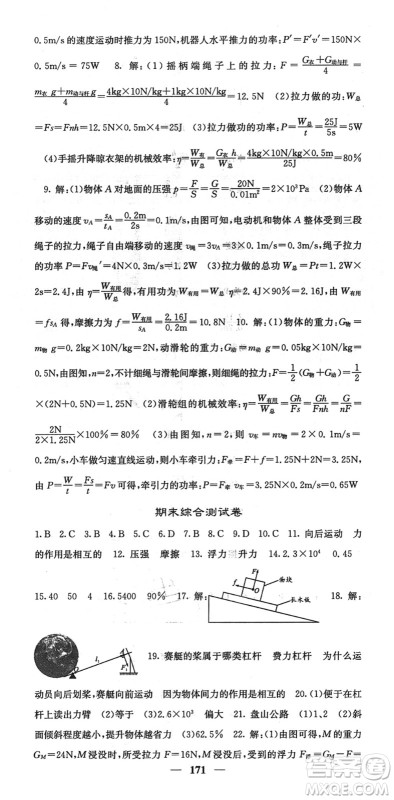 0.5m/s的速度运动时推力为150N,机器人水平推力的功率:P′=F′v′=150N×
0.5m/s=75W 8. 解:(1)摇柄端绳子上的拉力:F=(G衣+G动与杆)/4=
(m衣g+m动与杆g)/4=(4kg×10N/kg+1kg×10N/kg)/4=12.5N (2)拉力做的功:W总
=Fs=Fnh=12.5N×4×0.5m=25J (3)拉力做功的功率:P=W总/t=25J/5s=5W
(4)手摇升降晾衣架的机械效率:η=W有/W总=G衣h/W总=(4kg×10N/kg×0.5m)/25J=80%
9. 解:(1)物体A对地面的压强p=F/S=G/S=20N/0.01m²=2×10³Pa (2)物体A
移动的速度vA=sA/tA=0.2m/2s=0.1m/s,由图可知,电动机和物体A受到三段
绳子的拉力,绳子自由端移动的速度v绳=3×0.1m/s=0.3m/s,绳子拉力
的功率P=Fv绳=4N×0.3m/s=1.2W (3)拉力做的总功W总=Pt=1.2W×
2s=2.4J,由η=W有用/W总得,有用功为W有用=ηW总=2.4J×90%=2.16J,由
W有用=fsA得,摩擦力为f=W有用/sA=2.16J/0.2m=10.8N 10. (1)物体的重力:G物=
m物g=0.2kg×10N/kg=2N,动滑轮的重力:G动=m动g=0.05kg×10N/kg
=0.5N,由图知,n=2,不计细绳与滑轮间摩擦,则细绳的拉力:F=1/2(G物+G动)=1/2
×(2N+0.5N)=1.25N (2)滑轮组的机械效率:η=W有用/W总=Gh/Fs=Gh/Fnh=G/nF=
2N/(2×1.25N)×100%=80% (3)由图知,n=2,则v车=nv物=2×0.1m/s=
0.2m/s,小车做匀速直线运动,则小车牵引力:F牵=F+f=1.25N+2N=3.25N,
由P=W/t=Fs/t=Fv可得,牵引力的功率:P=F牵v车=3.25N×0.2m/s=0.65W
期末综合测试卷
1.B 2.C 3.B 4.D 5.D 6.C 7.C 8.B 9.B 10.C 11. 向后运动 力
的作用是相互的 12. 压强 摩擦 13. 浮力 升力 14.2.3×10⁴ 0.45
15.40 50 4 16.5400 90% 17. 解: F 滑块 f O 长木板 18. 解:
19. 赛艇的桨属于哪类杠杆 费力杠杆 为什么运
动员向后划桨,赛艇向前运动 因为物体间力的作用是相互的 20.(1)便于在杠
杆上读出力臂 (2)右 (3)等于 (4)变大 变大 21. 盘山公路 (1)1、2 (2)斜
面倾斜程度越小,越省力 (3)mgh/FL 变大 变小 22. 解:(1)由图可知M的重力
GM=24N,M浸没时,所受拉力F=16N,M浸没时,受到的浮力F浮=GM−F=
171